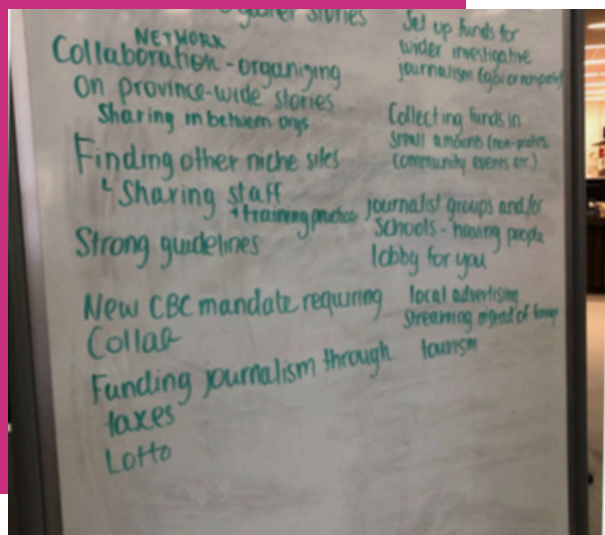 stories
NETWORK
Collaboration - organizing
on province-wide stories
Sharing in between orgs
Finding other niche sites
↳ Sharing staff
+ training practices
Strong guidelines
New CBC mandate requiring
Collab
Funding journalism through
taxes
Lotto
Set up funds for
wider investigative
journalism
Collecting funds in
small amounts (non-profits,
community events etc.)
journalist groups and/or
Schools - having people
lobby for you
local advertising
streaming instead of
tourism